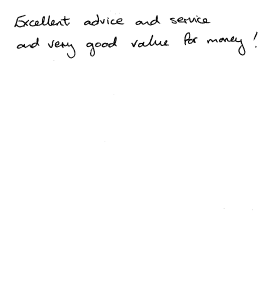 Excellent advice and service
and very good value for money!